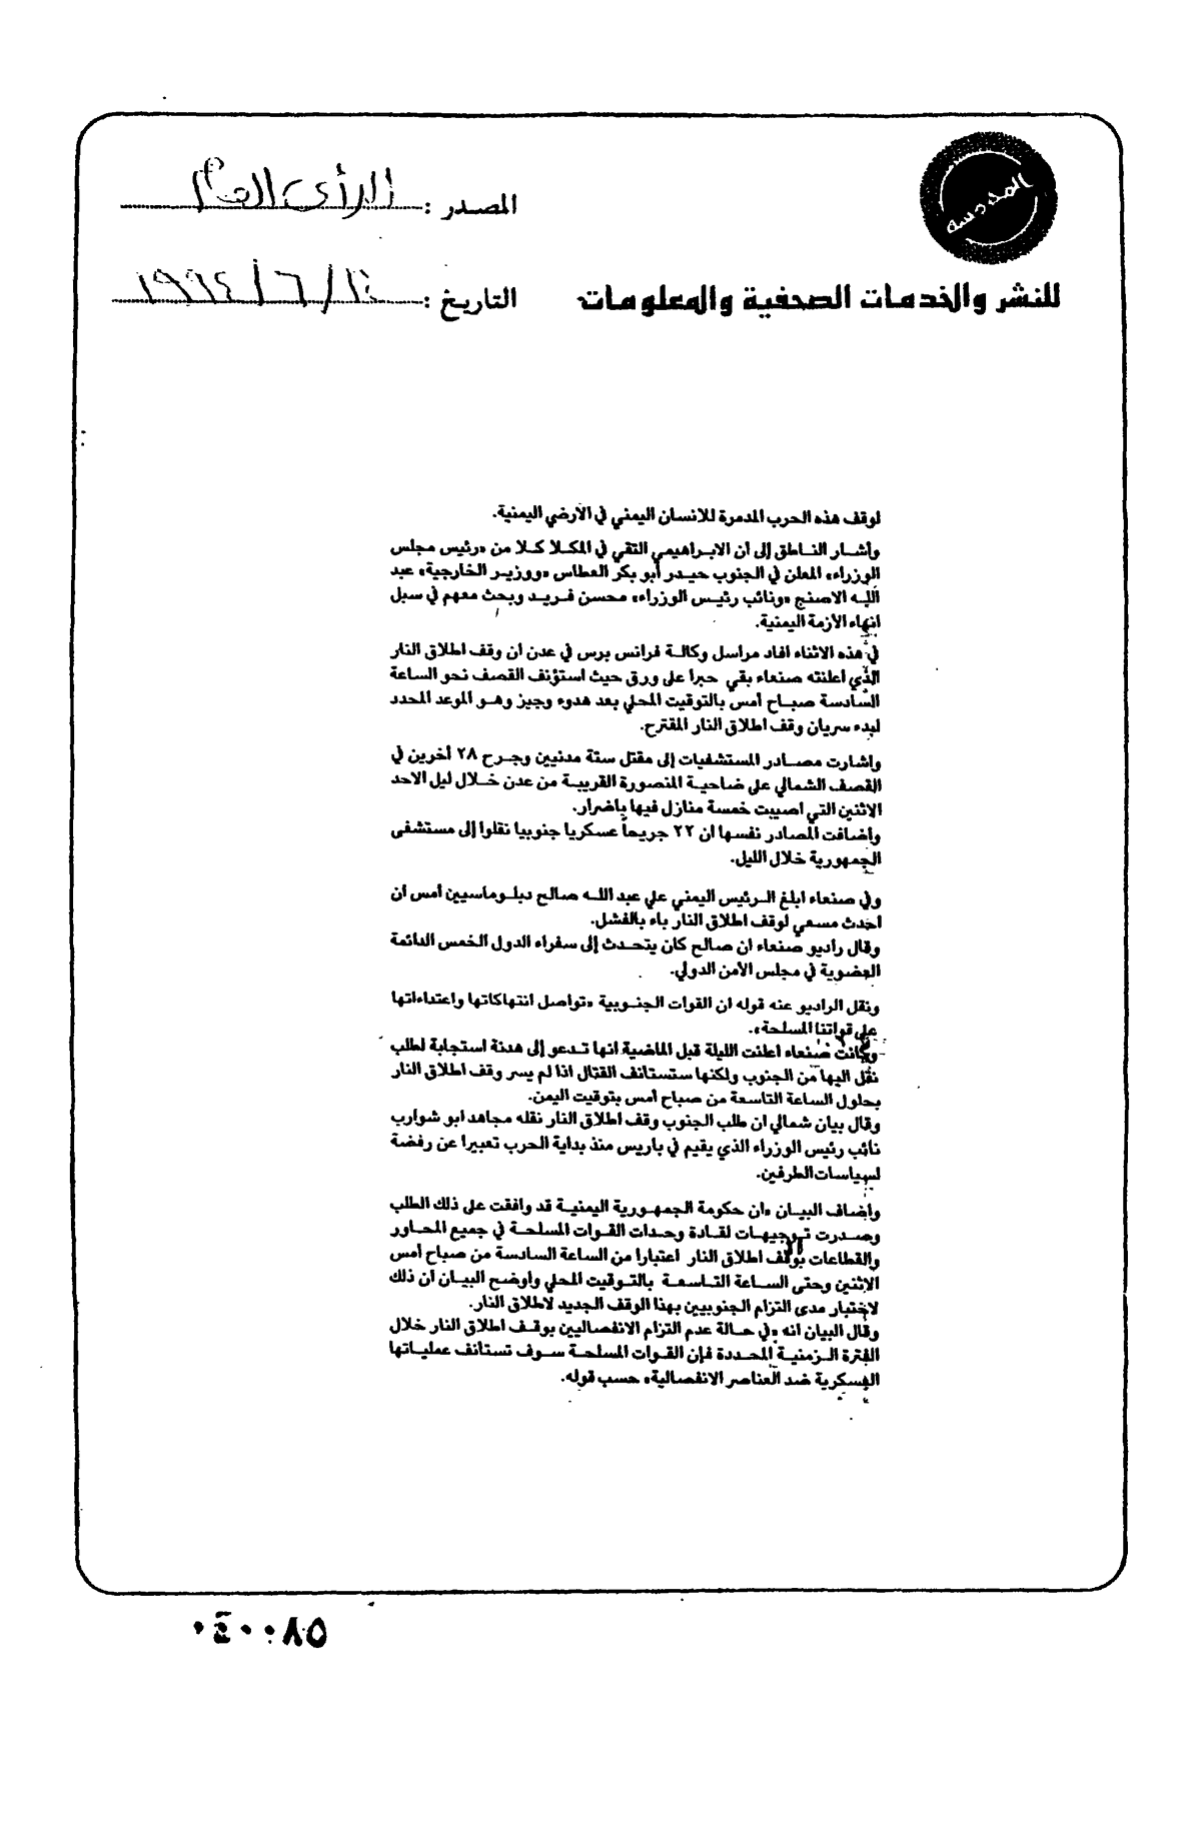 المدرسة
المصدر : الرأى العام
للنشر والخدمات الصحفية والمعلومات
التاريخ : ١٤/٦/١٩٩٤
لوقف هذه الحرب المدمرة للانسان اليمني في الأرضي اليمنية.
وأشار الناطق إلى أن الابراهيمي التقي في المكلا كلا من «رئيس مجلس
الوزراء» المعلن في الجنوب حيدر أبو بكر العطاس «ووزير الخارجية» عبد
الله الاصنج «ونائب رئيس الوزراء» محسن فريد وبحث معهم في سبل
انهاء الأزمة اليمنية.
في هذه الاثناء افاد مراسل وكالة فرانس برس في عدن ان وقف اطلاق النار
الذي اعلنته صنعاء بقي حبرا على ورق حيث استؤنف القصف نحو الساعة
السادسة صباح أمس بالتوقيت المحلي بعد هدوء وجيز وهو الموعد المحدد
لبدء سريان وقف اطلاق النار المقترح.
واشارت مصادر المستشفيات إلى مقتل ستة مدنيين وجرح ٢٨ أخرين في
القصف الشمالي على ضاحية المنصورة القريبة من عدن خلال ليل الاحد
الاثنين التي اصيبت خمسة منازل فيها باضرار.
واضافت المصادر نفسها ان ٢٢ جريحاً عسكريا جنوبيا نقلوا إلى مستشفى
الجمهورية خلال الليل.
وفي صنعاء ابلغ الرئيس اليمني علي عبد الله صالح دبلوماسيين أمس ان
احدث مسعي لوقف اطلاق النار باء بالفشل.
وقال راديو صنعاء ان صالح كان يتحدث إلى سفراء الدول الخمس الدائمة
العضوية في مجلس الأمن الدولي.
ونقل الراديو عنه قوله ان القوات الجنوبية «تواصل انتهاكاتها واعتداءاتها
على قواتنا المسلحة».
وكانت صنعاء اعلنت الليلة قبل الماضية انها تدعو إلى هدنة استجابة لطلب
نقل اليها من الجنوب ولكنها ستستانف القتال اذا لم يسر وقف اطلاق النار
بحلول الساعة التاسعة من صباح أمس بتوقيت اليمن.
وقال بيان شمالي ان طلب الجنوب وقف اطلاق النار نقله مجاهد ابو شوارب
نائب رئيس الوزراء الذي يقيم في باريس منذ بداية الحرب تعبيرا عن رفضة
لسياسات الطرفين.
واضاف البيان «ان حكومة الجمهورية اليمنية قد وافقت على ذلك الطلب
وصدرت توجيهات لقادة وحدات القوات المسلحة في جميع المحاور
والقطاعات بوقف اطلاق النار اعتبارا من الساعة السادسة من صباح أمس
الاثنين وحتى الساعة التاسعة بالتوقيت المحلي واوضح البيان ان ذلك
لاختبار مدى التزام الجنوبيين بهذا الوقف الجديد لاطلاق النار.
وقال البيان انه «في حالة عدم التزام الانفصاليين بوقف اطلاق النار خلال
الفترة الزمنية المحددة فإن القوات المسلحة سوف تستانف عملياتها
العسكرية ضد العناصر الانفصالية» حسب قوله.
٠٤٠٠٨٥